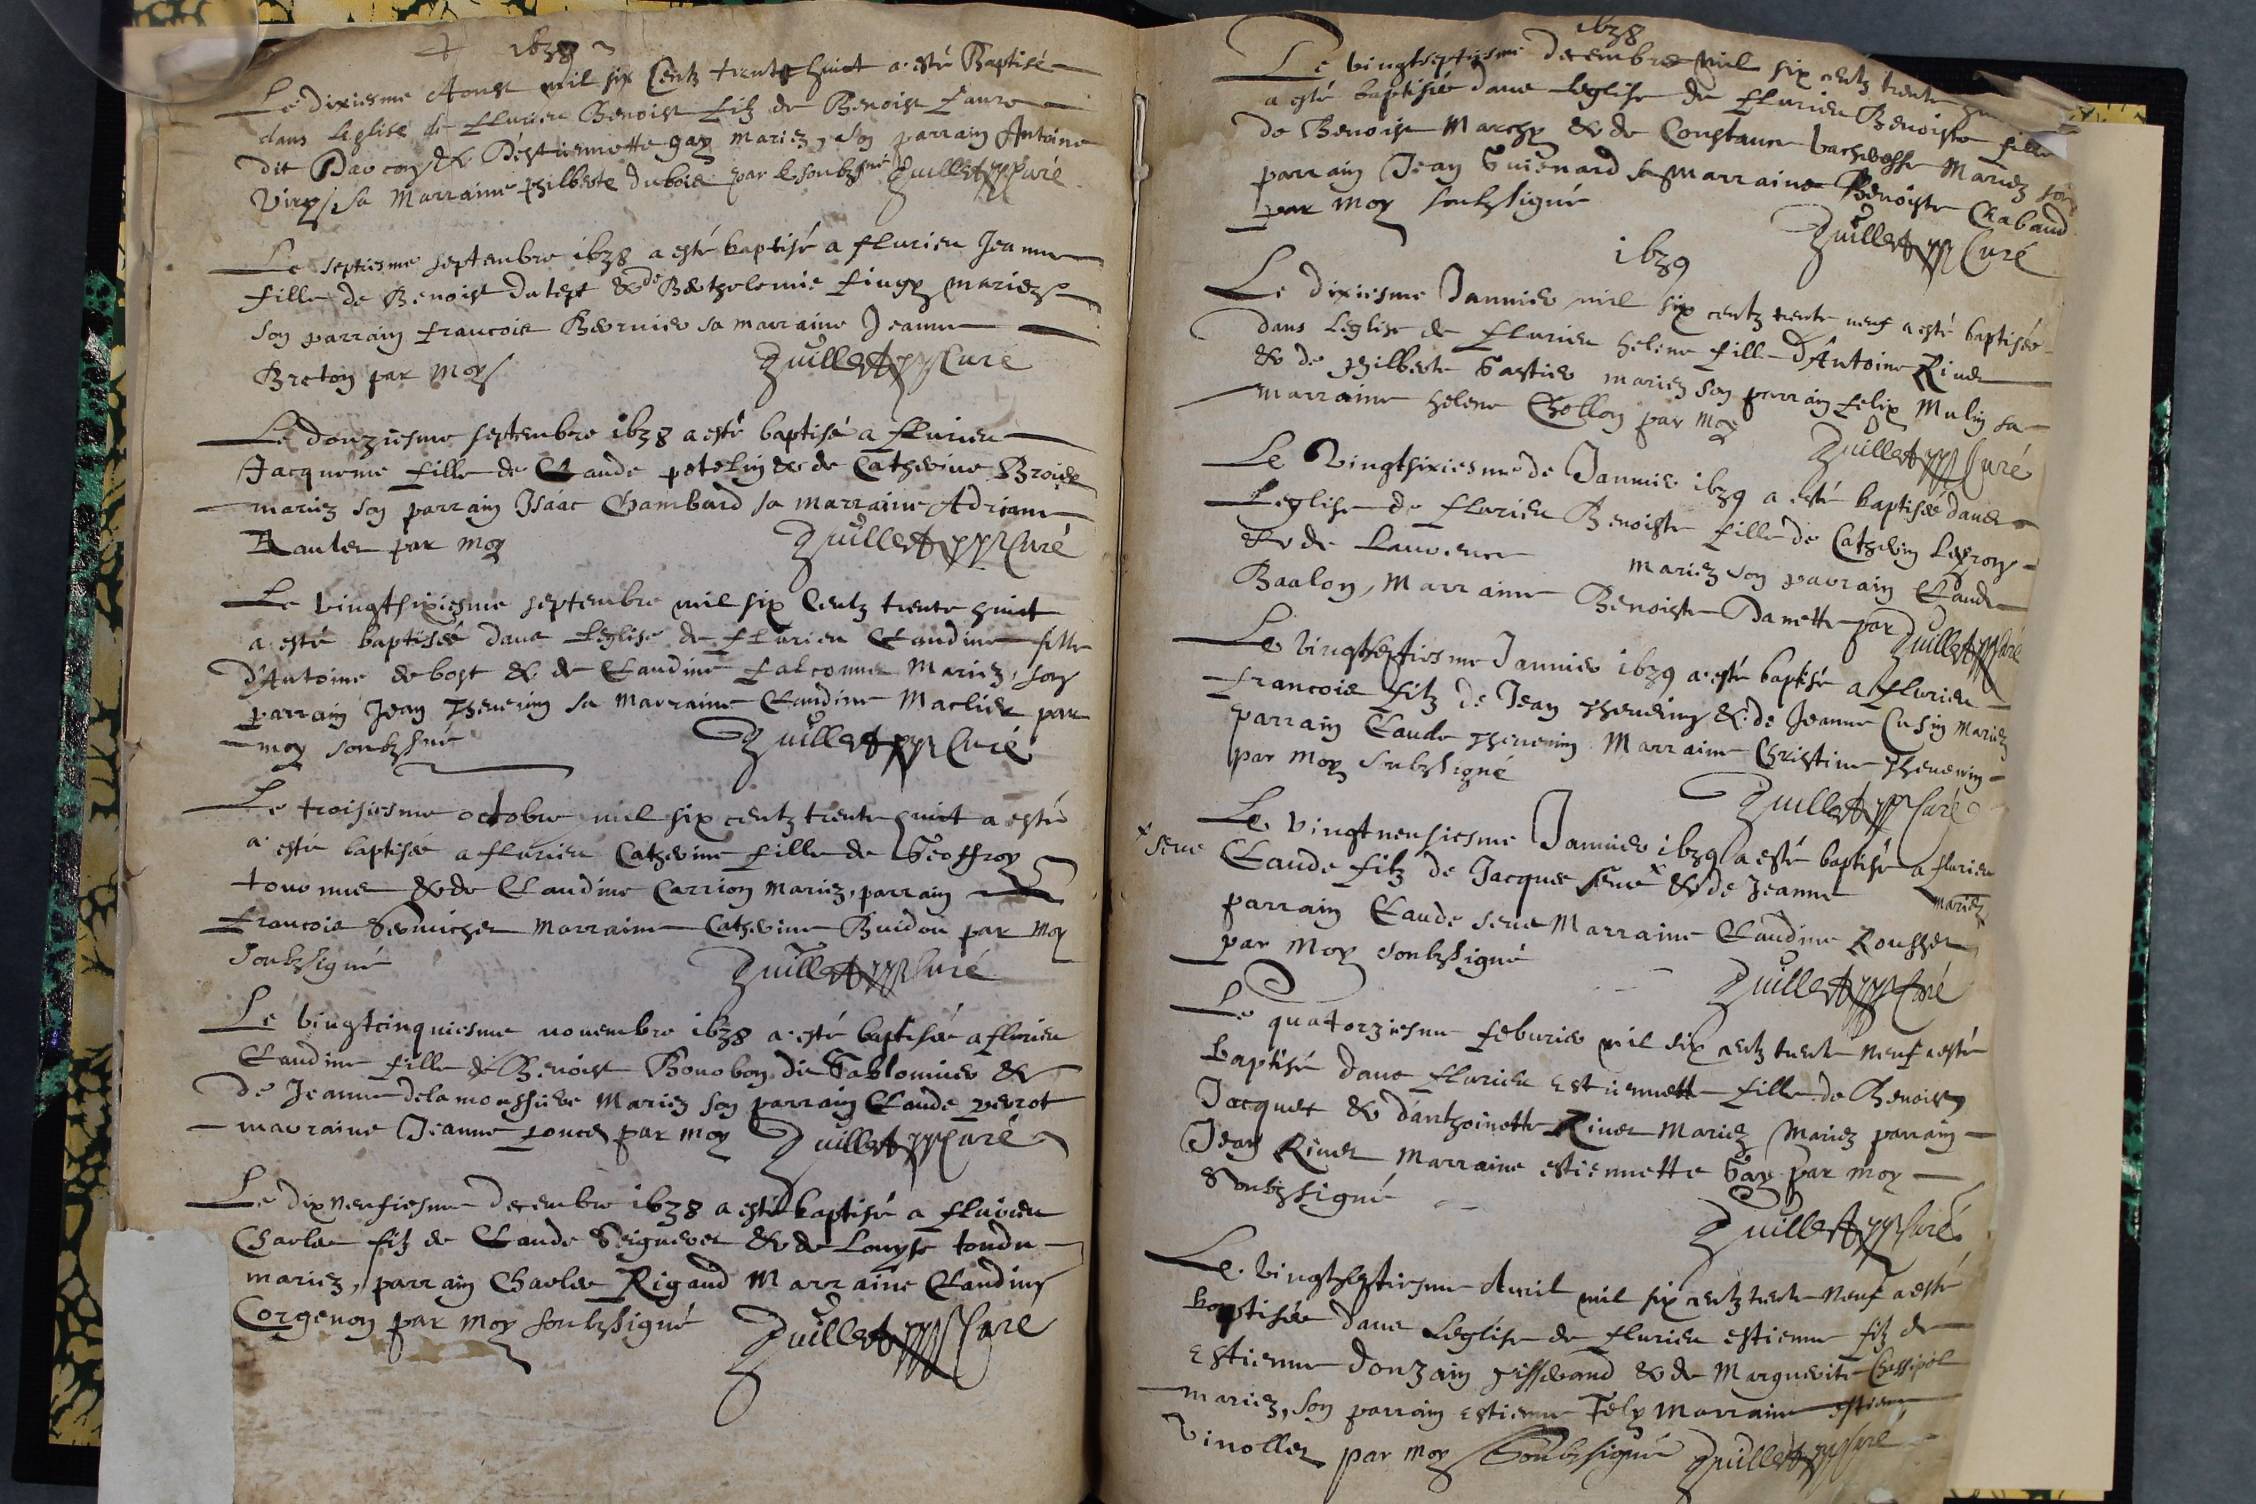 1638
Le dixiesme Aoust mil six Centz trente huict a esté Baptisé
dans leglise de fflurieu Benoist filz de Benoist faure
dit & Destiennette gay mariez, son parrain Antoine
Viry, sa Marraine philberte dubois par le soubzsné Quillet Curé
Le septiesme septembre 1638 a esté baptisé a fflurieu Jeanne
fille de Benoist & de Bartholomie mariez
son parrain francois Bernier sa marraine Jeanne
Breton par moy Quillet Curé
Le douziesme septembre 1638 a esté baptisé a fflurieu
Jacqueme fille de Claude potelin & de Catherine
mariez son parrain Isaac Chambard sa marraine Adriane
par moy Quillet Curé
Le vingtsixiesme septembre mil six Centz trente huict
a esté baptisée dans Leglise de fflurieu Claudine fille
d'Antoine debost & de Claudine falconnet Mariez, son
parrain Jean Thevenin sa Marraine Claudine par
moy soubzsné Quillet Curé
Le troisiesme octobre mil six centz trente huict a esté
a esté baptisée a fflurieu Catherine fille de Geoffroy
& de Claudine Carrion mariez, parrain
francois Marraine Catherine par moy
soubzsigné Quillet Curé
Le vingtcinquiesme novembre 1638 a esté baptisée a fflurieu
Claudine fille de Benoist dit &
de Jeanne delamoussiere Mariez son parrain Claude perrot
marraine Jeanne par moy Quillet Curé
Le dix neufiesme decembre 1638 a esté baptisé a fflurieu
Charles filz de Claude & de Louyse tondu
mariez, parrain Charles Rigaud Marraine Claudine
Corgenon par moy soubzsigné Quillet Curé
1638
Le vingtseptiesme decembre mil six centz trente
a esté baptisée dans leglise de fflurieu Benoiste fille
de Benoist & de Constance Mariez son
parrain Jean Guienard sa Marraine Benoiste Chabaud
par moy soubzsigné Quillet Curé
1639
Le dixiesme Januier mil six centz trente neuf a esté baptisée
dans Leglise de fflurieu helene fille d'Antoine
& de philberte mariez son parrain felix Mulin sa
marraine helene Chollon par moy
Quillet Curé
Le Vingtsixiesme de Januier 1639 a esté baptisée dans
Leglise de fflurieu Benoiste fille de Catherin
& de Laurence mariez son parrain Claude
Baalon, Marraine Benoiste Danette par Quillet Curé
Le Vingtseptiesme Januier 1639 a esté baptisé a fflurieu
francois filz de Jean Thevenin & de Jeanne Cusin Mariez
parrain Claude Thevenin Marraine Christine Thevenin
par moy soubzsigné
Quillet Curé
Le vingtneufiesme Januier 1639 a esté baptisé a flurieu
x seue
Claude filz de Jacques seue x & de Jeanne mariez
parrain Claude seue Marraine Claudine Rousset
par moy soubzsigné
Quillet Curé
Le quatorziesme feburier mil six centz trente neuf a esté
baptisé dans flurieu Estiennette fille de Benoist
Jacquet & dantzoinette Mariez Mariez parrain
Jean Marraine estiennette Gay par moy
Soubzsigné
Quillet Curé
Le vingtseptiesme Auril mil six centz trente neuf a esté
baptisée dans Leglise de flurieu estienne filz de
Estienne donzain & de Marguerite
mariez, son parrain Estienne Marraine
par moy Soubzsigné Quillet Curé